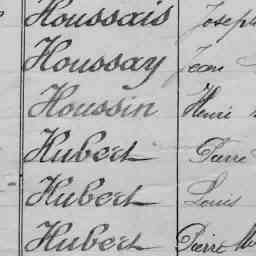 Houssais Joseph
Houssay Jean
Houssin Henri
Hubert Pierre
Hubert Louis
Hubert Pierre